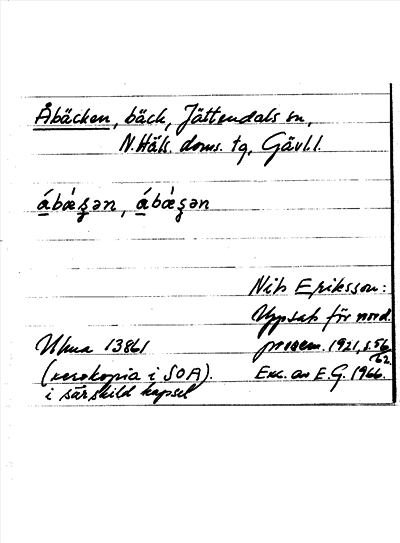 Åbäcken, bäck, Jättendals sn,
N. Häls. doms. tg, Gävl.l.
á̱bœ́ʂən, á̱bœ́ʂən
Nils Eriksson:
Uppsats för nord.
prosem. 1921, s. 56
62.
Exc. av E.G. 1966.
Ulma 13861
(xerokopia i SOA).
i särskild kapsel